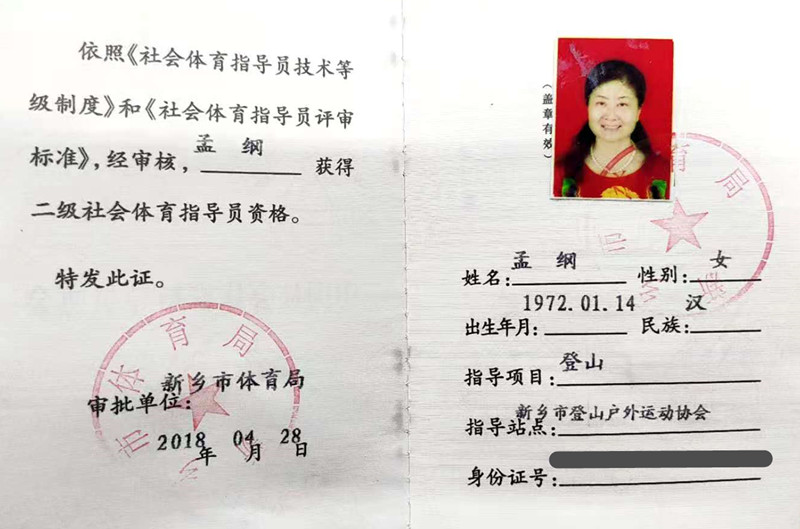 依照《社会体育指导员技术等
级制度》和《社会体育指导员评审
标准》,经审核,孟 纲 获得
二级社会体育指导员资格。
特发此证。
体育局
新乡市体育局
审批单位:
市
2018年 04月 28日
(盖章有效)
育局
市
姓名:孟 纲 性别:女
出生年月:1972.01.14 民族:汉
指导项目:登山
指导站点:新乡市登山户外运动协会
身份证号: